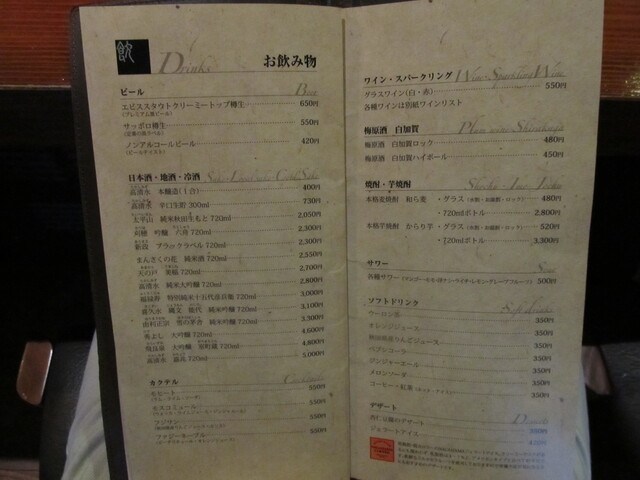 飲
Drinks お飲み物
ビール Beer
エビススタウトクリーミートップ樽生 650円
(プレミアム黒ビール)
サッポロ樽生 550円
ノンアルコールビール 420円
(ビールテイスト)
日本酒・地酒・冷酒
高清水 本醸造 400円
高清水 辛口生貯 300ml 730円
太平山 純米秋田生もと 720ml 2,050円
刈穂 吟醸 六舟 720ml 2,300円
ブラックラベル 720ml 2,300円
まんさくの花 純米酒 720ml 2,550円
天の戸 美稲 720ml 2,700円
高清水 純米大吟醸 720ml 2,800円
福禄寿 特別純米十五代彦兵衛 720ml 3,000円
喜久水 縄文 能代 純米吟醸 720ml 3,100円
由利正宗 雪の茅舎 純米吟醸 720ml 3,300円
秀よし 大吟醸 720ml 4,600円
飛良泉 大吟醸 720ml 4,800円
高清水 720ml 5,000円
カクテル
モヒート 550円
モスコミュール 550円
フジサン 550円
ファジーネーブル 550円
ワイン・スパークリング Wine・Sparkling Wine
グラスワイン(白・赤) 550円
各種ワインは別紙ワインリスト
梅原酒 白加賀
梅原酒 白加賀ロック 480円
梅原酒 白加賀ハイボール 450円
焼酎・芋焼酎
本格麦焼酎 和ら麦 ・グラス (水割・お湯割・ロック) 480円
・720mlボトル 2,800円
本格芋焼酎 からり芋・グラス (水割・お湯割・ロック) 520円
・720mlボトル 3,300円
サワー
各種サワー 500円
ソフトドリンク
ウーロン茶 350円
オレンジジュース 350円
りんごジュース 350円
ペプシコーラ 350円
ジンジャーエール 350円
メロンソーダ 350円
コーヒー・紅茶 350円
デザート
ジェラートアイス